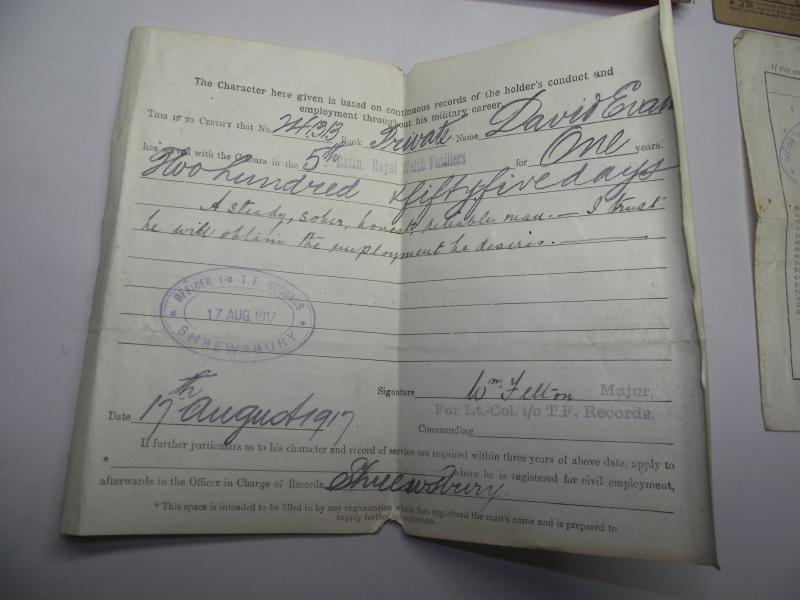 The Character here given is based on continuous records of the holder's conduct and
employment throughout his military career.
THIS IS TO CERTIFY that No. Rank Private Name David Evans
has served with the Colours in the 5th Battn. Royal Welsh Fusiliers for One years.
Two hundred & fifty five days
A steady, sober, honest, reliable man. — I trust
he will obtain the employment he desires. —
OFFICER i/c T. F. RECORDS
17 AUG 1917
SHREWSBURY
Signature Wm. Felton Major,
For Lt.-Col i/c T.F. Records.
Date 17th August 1917
Commanding
If further particulars as to his character and record of service are required within three years of above date, apply to
* where he is registered for civil employment,
afterwards to the Officer in Charge of Records Shrewsbury.
* This space is intended to be filled in by any organization which has registered the man's name and is prepared to
supply further information.
If this